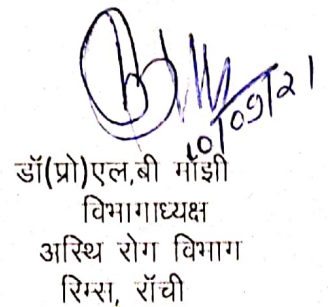 10/09/21
डॉ(प्रो)एल,बी मॉझी
विभागाध्यक्ष
अस्थि रोग विभाग
रिम्स, रॉची